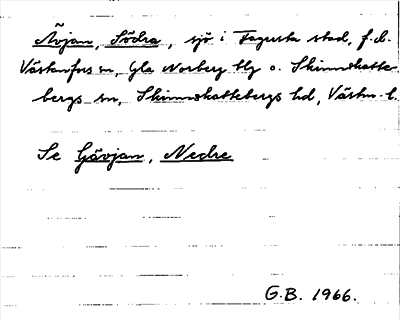 Åvjan, Södra, sjö i Fagersta stad, f.d.
Västanfors sn, Gla Norberg blg o. Skinnskatte-
bergs sn, Skinnskattebergs hd, Västm. l.
Se Gåvjan, Nedre
G.B. 1966.